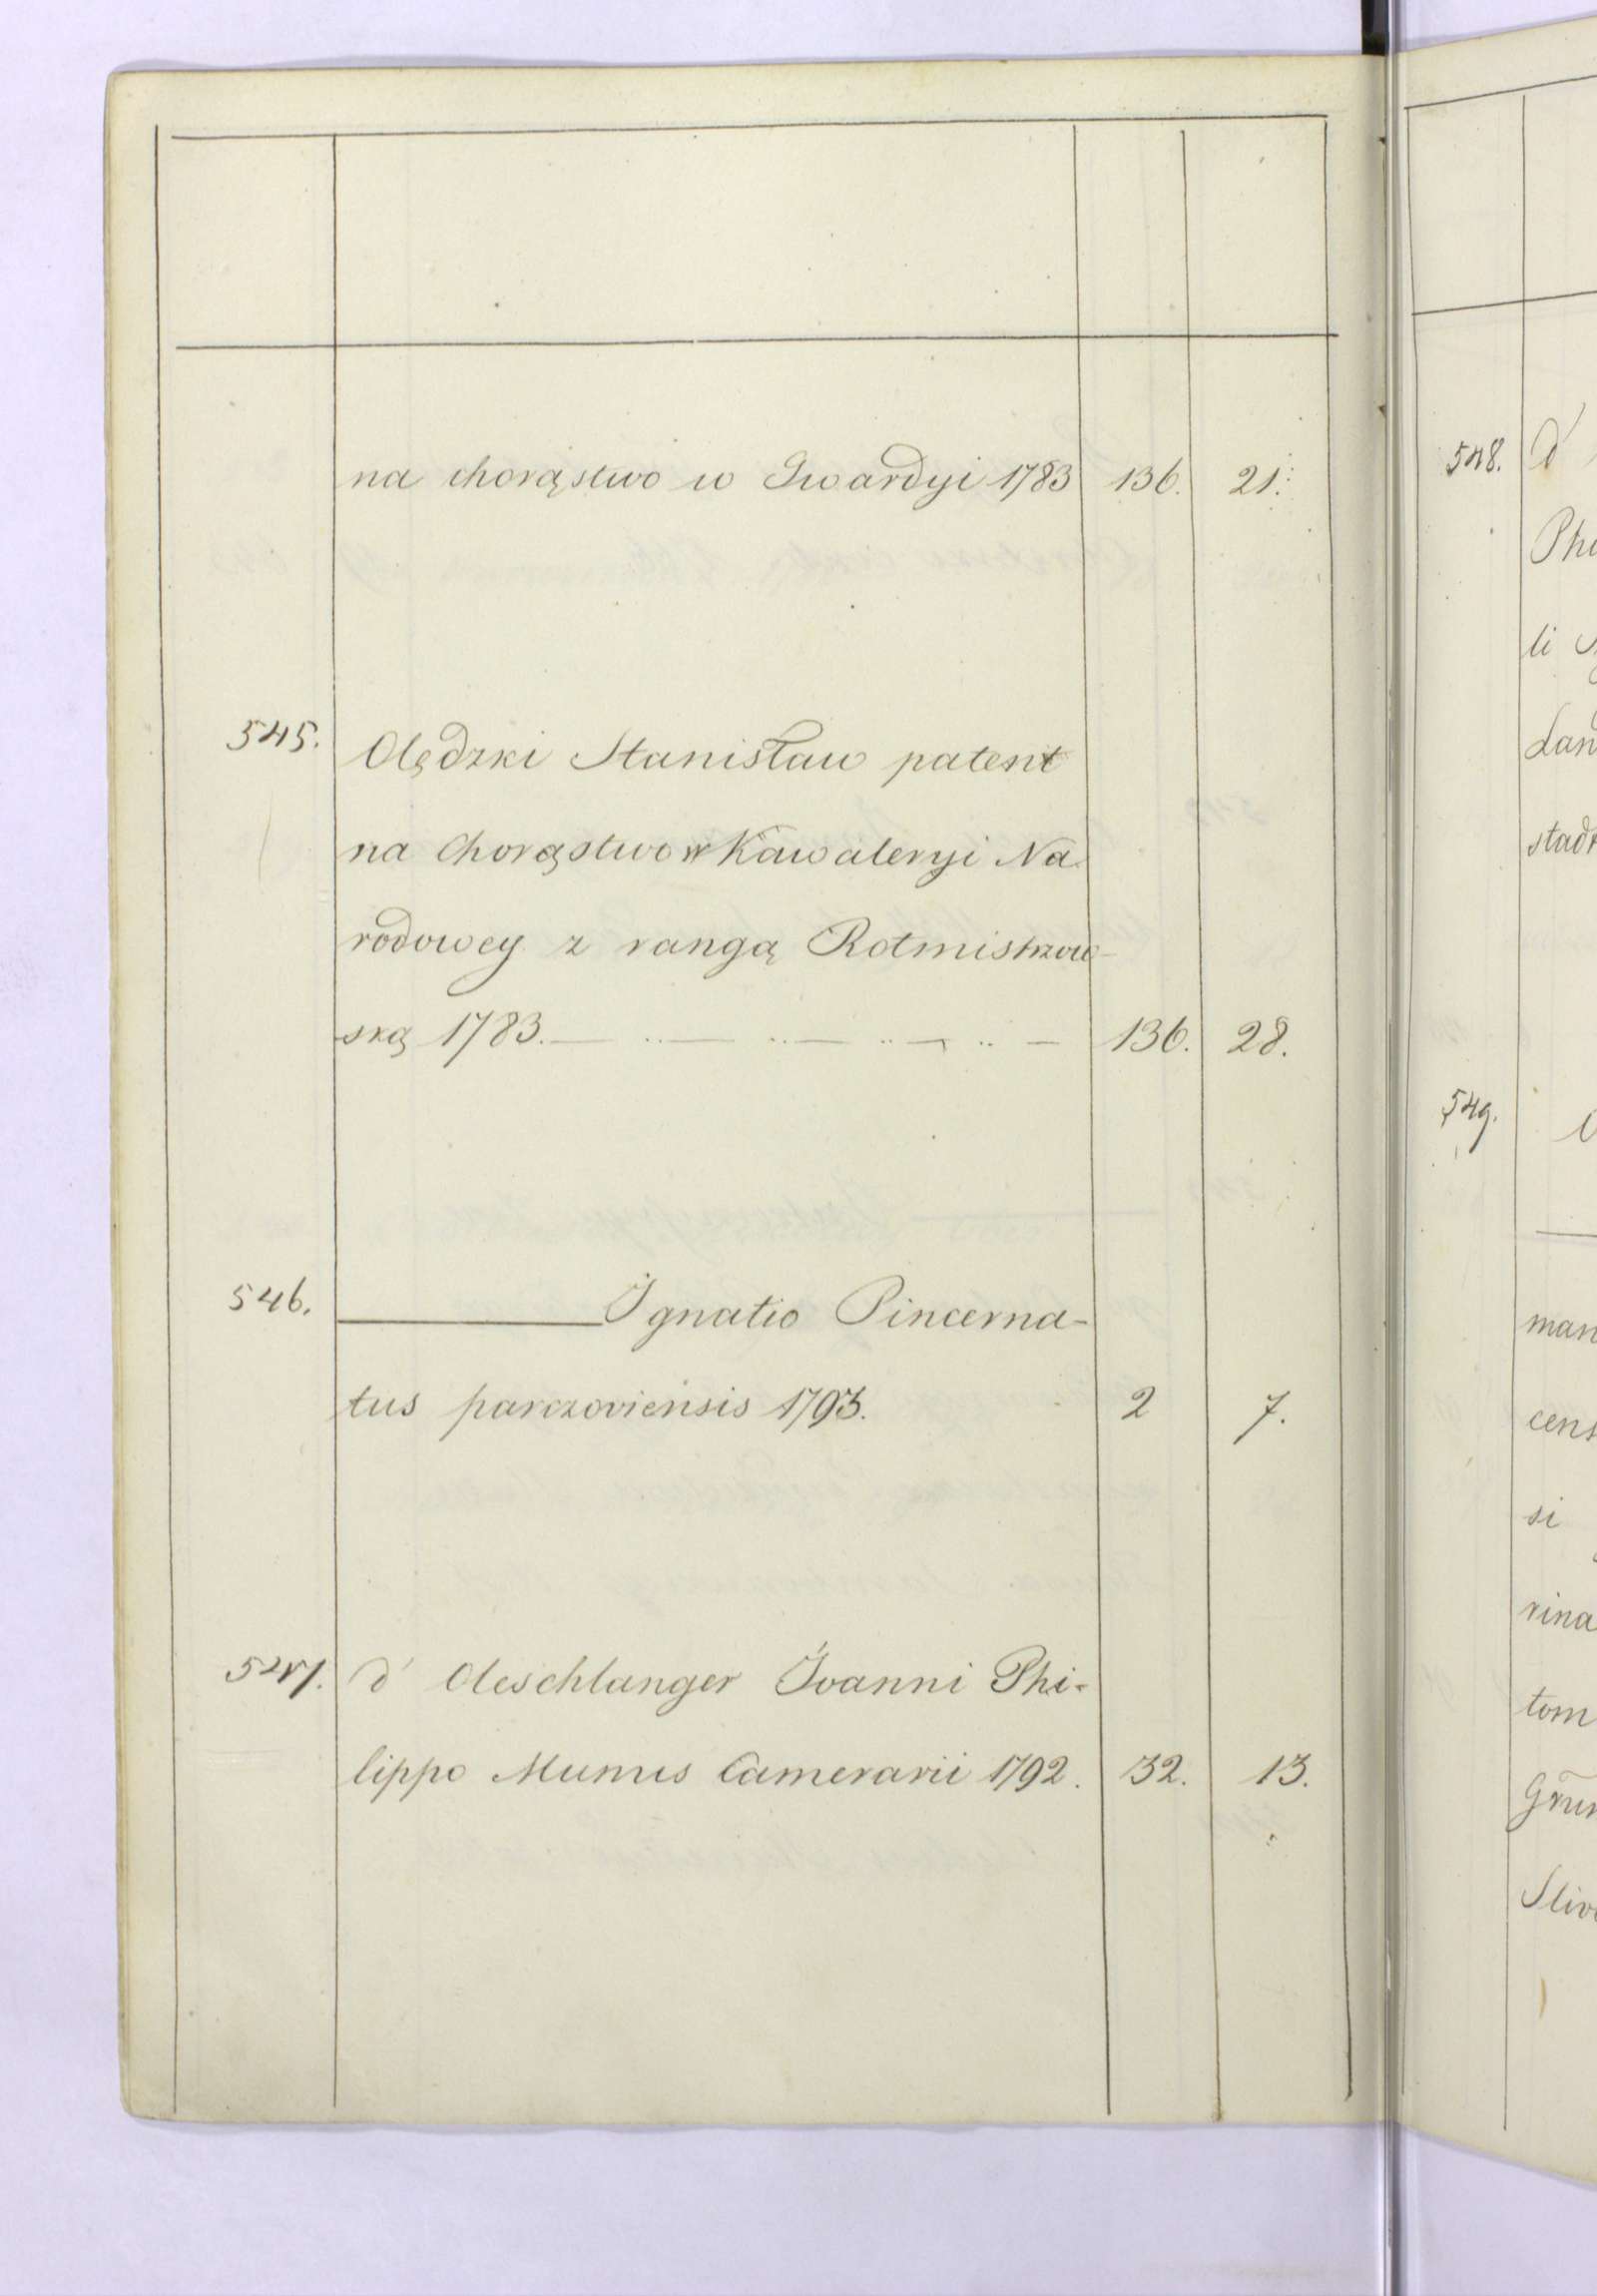 na chorąstwo w Gwardyi 1783 136. 21.
545. Olędzki Stanisław patent
na chorąstwo w Kawaleryi Na
rodowey z rangą Rotmistrzow-
ską 1783. 136. 28.
546. Ignatio Pincerna-
tus parczoviensis 1793. 2 7.
547. d' Oleschlanger Joanni Phi-
lippo Munus Camerarii 1792. 32. 13.
548. d
li
549.
si